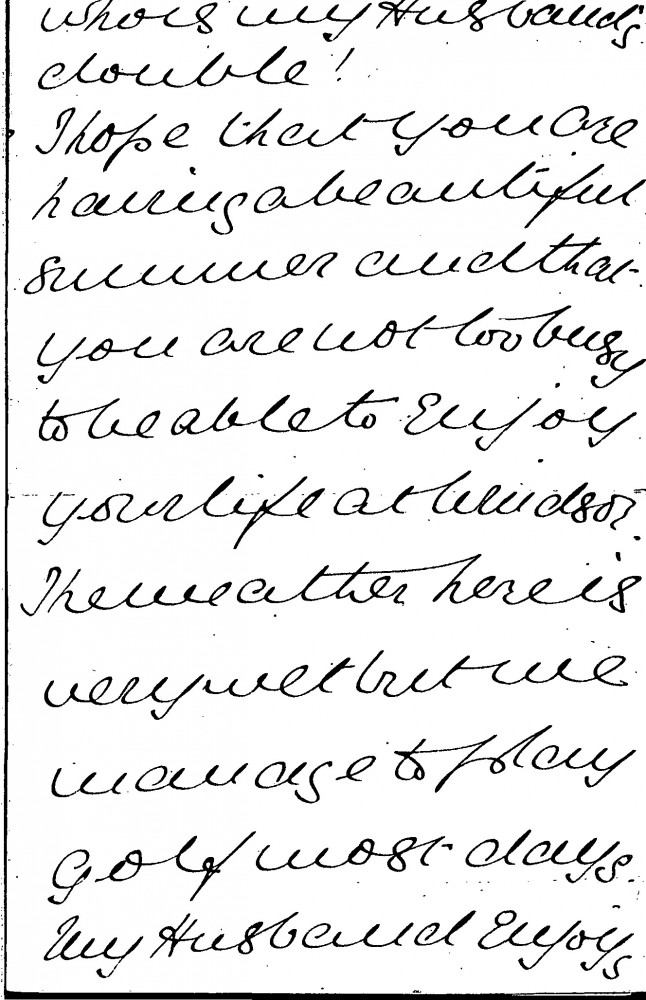 who is my Husband's
double!
I hope that you are
having a beautiful
summer and that
you are not too busy
to be able to Enjoy
your life at Windsor.
The weather here is
very wet but we
manage to play
golf most days.
My Husband Enjoys